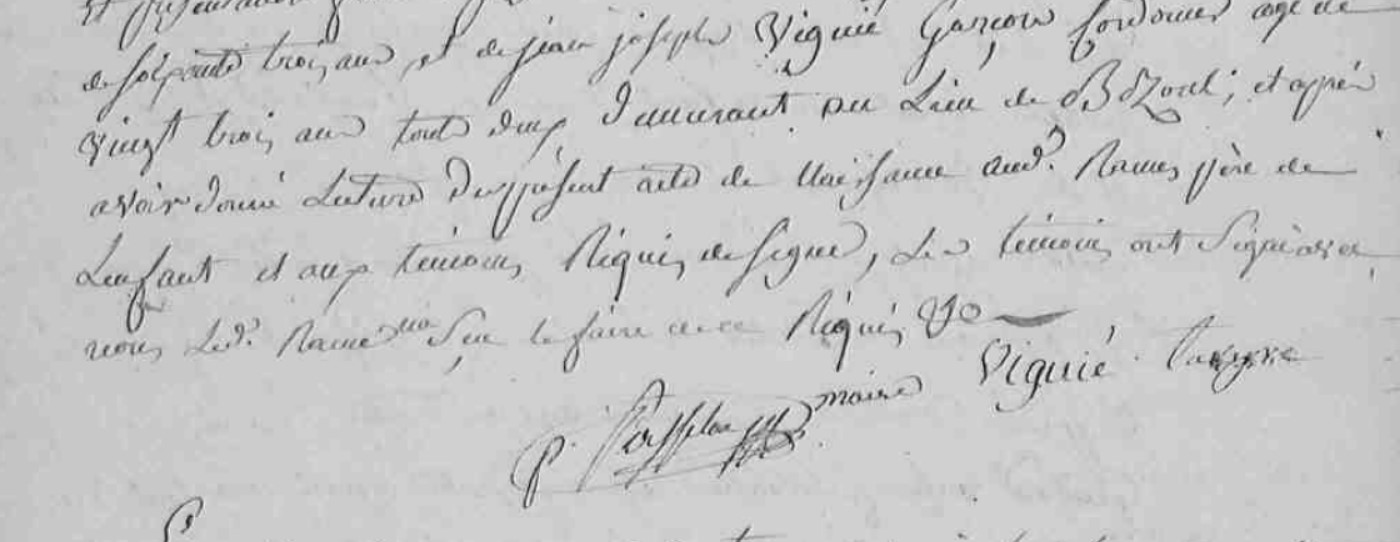 de soixante trois ans, et de jean joseph Viguié Garçon Cordonnier agé de
vingt trois ans tous deux demeurant au Lieu de Bozoul; et après
avoir donné Lecture du présent acte de Naissance aud. Rames père de
Lenfant et aux témoins Réquis de signer, Les témoins ont Signé avec
nous Led. Rames na Sçu le faire de ce Réquis
maire Viguié